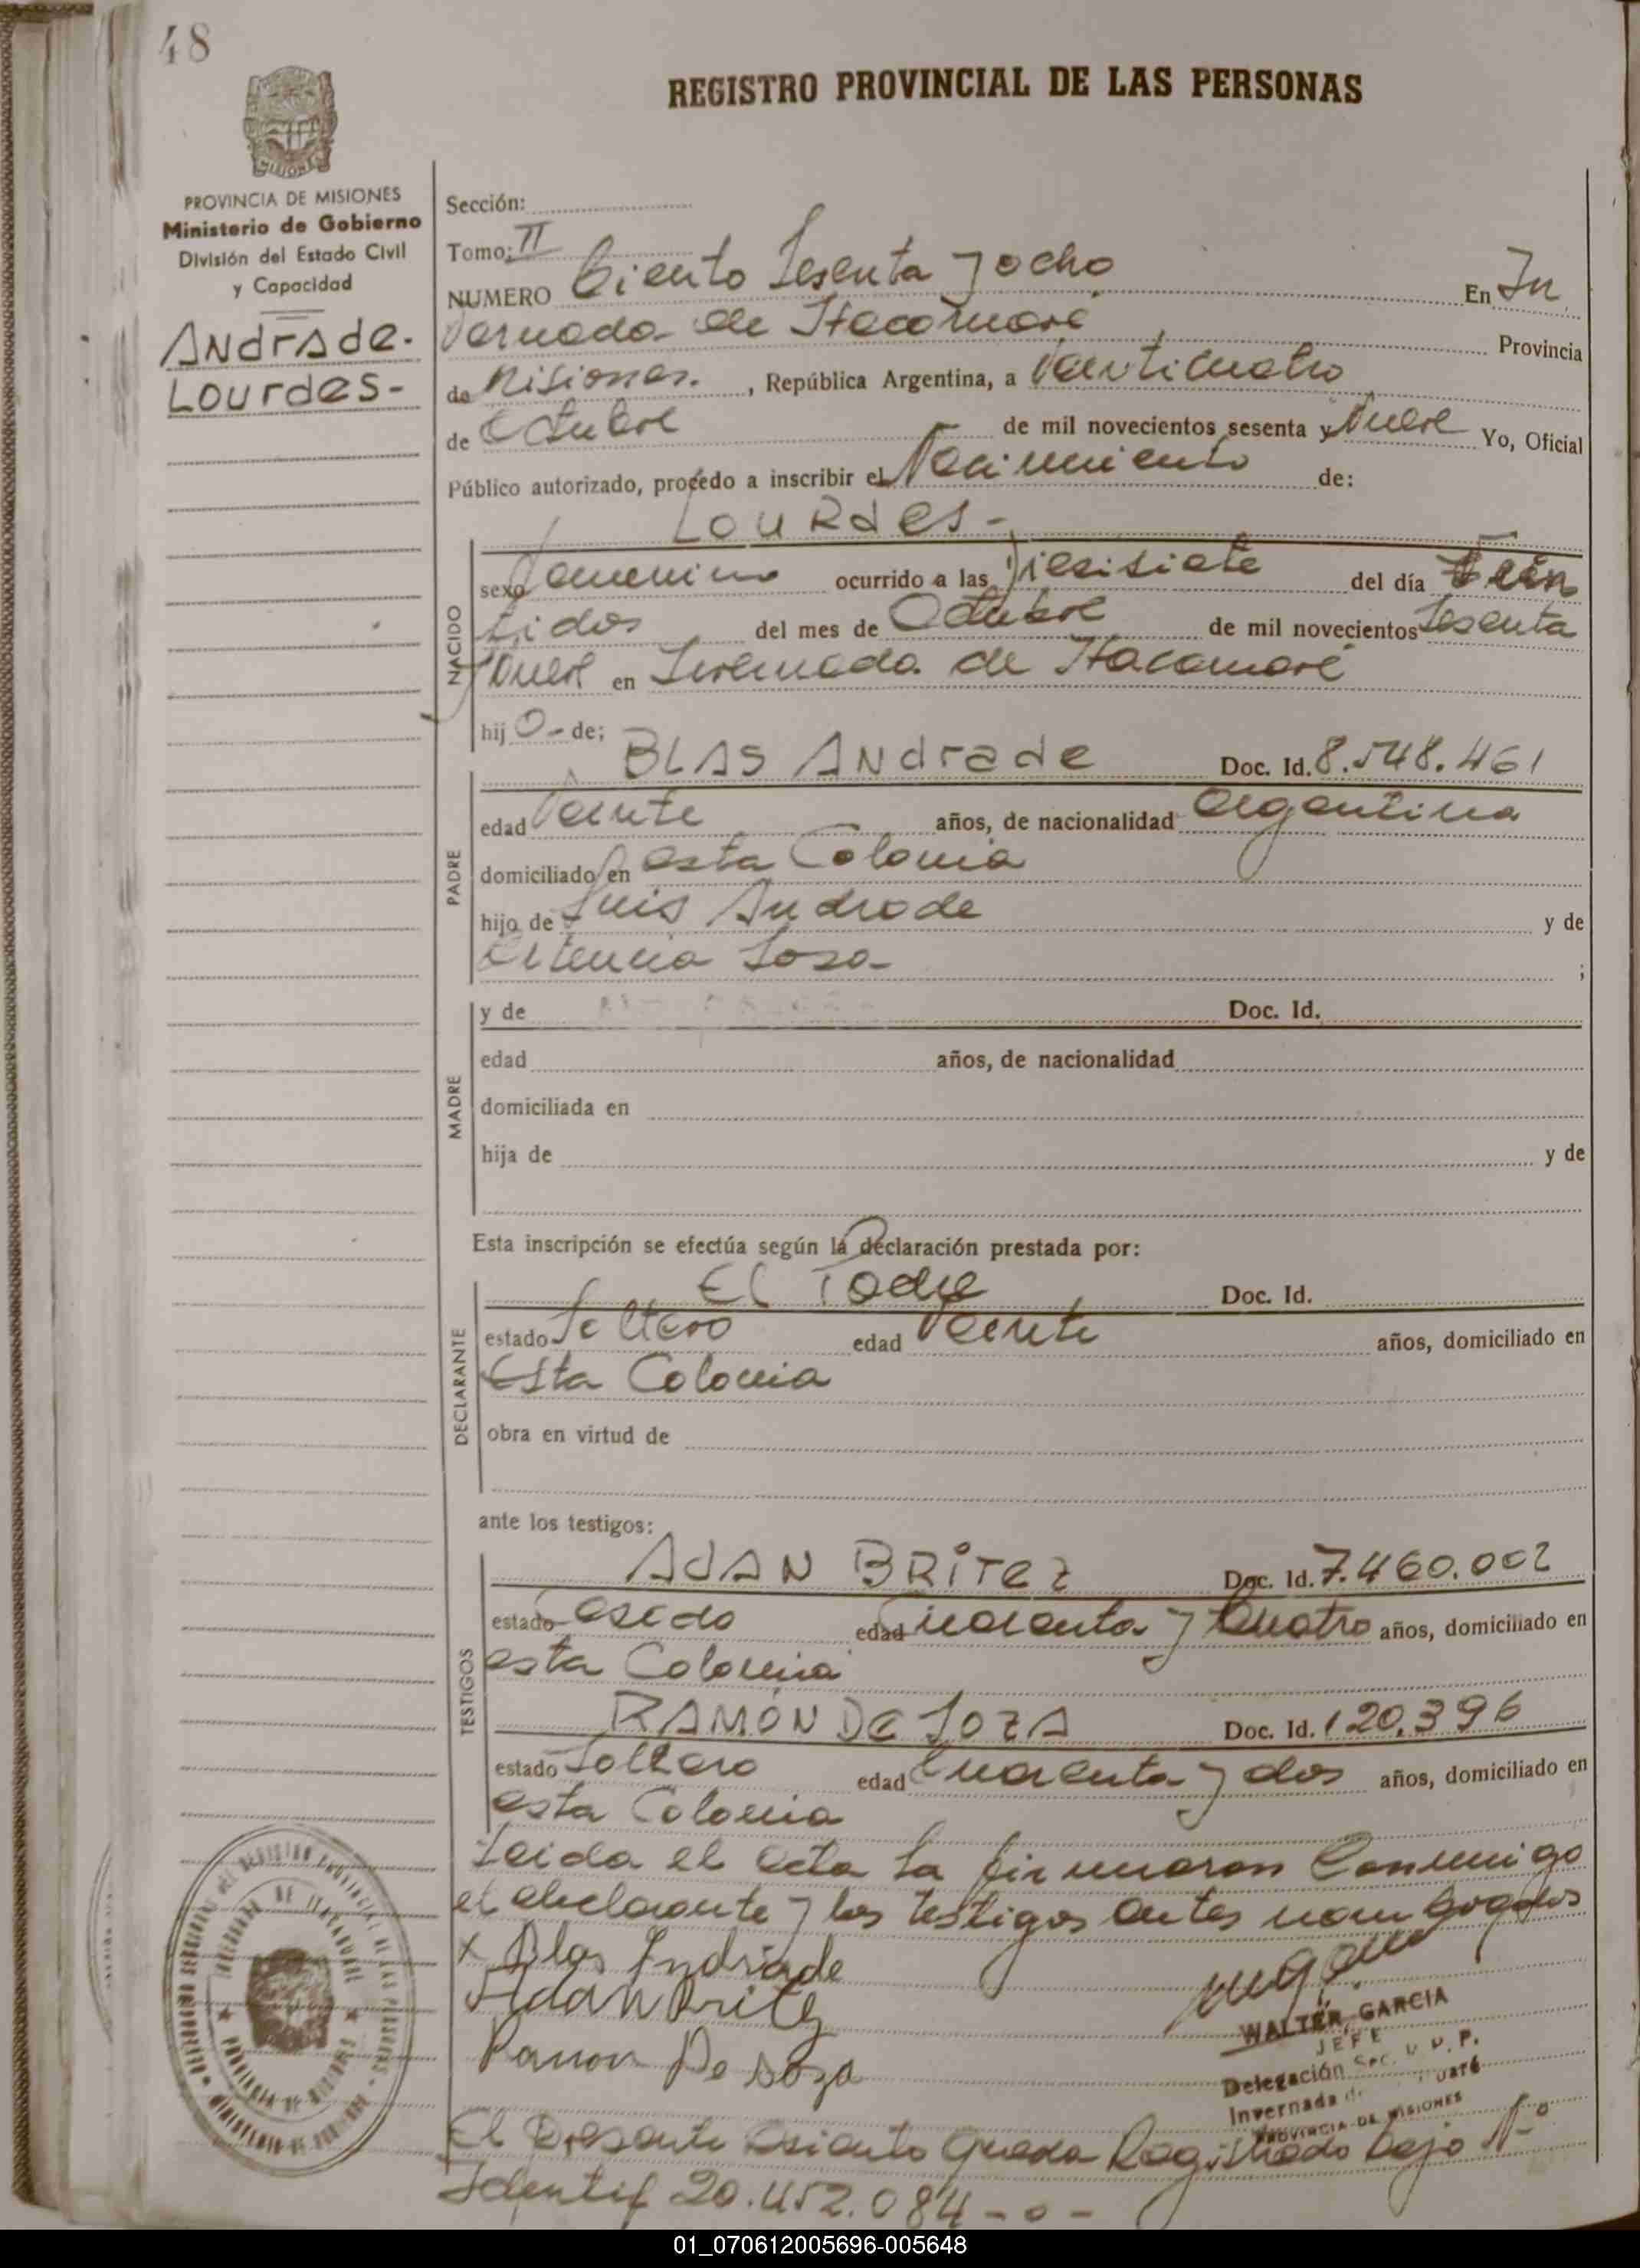 48
REGISTRO PROVINCIAL DE LAS PERSONAS
MISIONES
PROVINCIA DE MISIONES
Ministerio de Gobierno
División del Estado Civil
y Capacidad
Andrade.
Lourdes-
Sección:
Tomo: II
NUMERO Ciento Sesenta y ocho En In
vernada de Itacaruaré Provincia
de Misiones. , República Argentina, a Veinticuatro
de Octubre de mil novecientos sesenta y Nueve Yo, Oficial
Público autorizado, procedo a inscribir el Nacimiento de:
LOURdes-
NACIDO
sexo Femenino ocurrido a las Diecisiete del día Vein
tidos del mes de Octubre de mil novecientos Sesenta
y Nueve en Invernada de Itacaruaré
hij o- de;
PADRE
BLAS Andrade Doc. Id. 8.548.461
edad Veinte años, de nacionalidad Argentina
domiciliado en esta Colonia
hijo de Luis Andrade y de
Sosa ;
MADRE
y de Doc. Id.
edad años, de nacionalidad
domiciliada en
hija de y de
Esta inscripción se efectúa según la declaración prestada por:
DECLARANTE
El Padre Doc. Id.
estado Soltero edad Veinte años, domiciliado en
Esta Colonia
obra en virtud de
ante los testigos:
TESTIGOS
ADAN BRiTez Doc. Id. 7.460.002
estado Casado edad Cuarenta y Cuatro años, domiciliado en
esta Colonia
RAMÓN De SOZA Doc. Id. 120.396
estado Soltero edad Cuarenta y dos años, domiciliado en
esta Colonia
Leida el acta la firmaron Conmigo
el declarante y los testigos antes nombrados
x Blas Andrade
Adan Britez
Ramon De Soza
WALTER GARCIA
JEFE
Delegación Sec.
Invernada de
PROVINCIA DE MISIONES
El Presente asiento queda Registrado bajo Nº
Identif 20.452.084 - o -
01_070612005696-005648